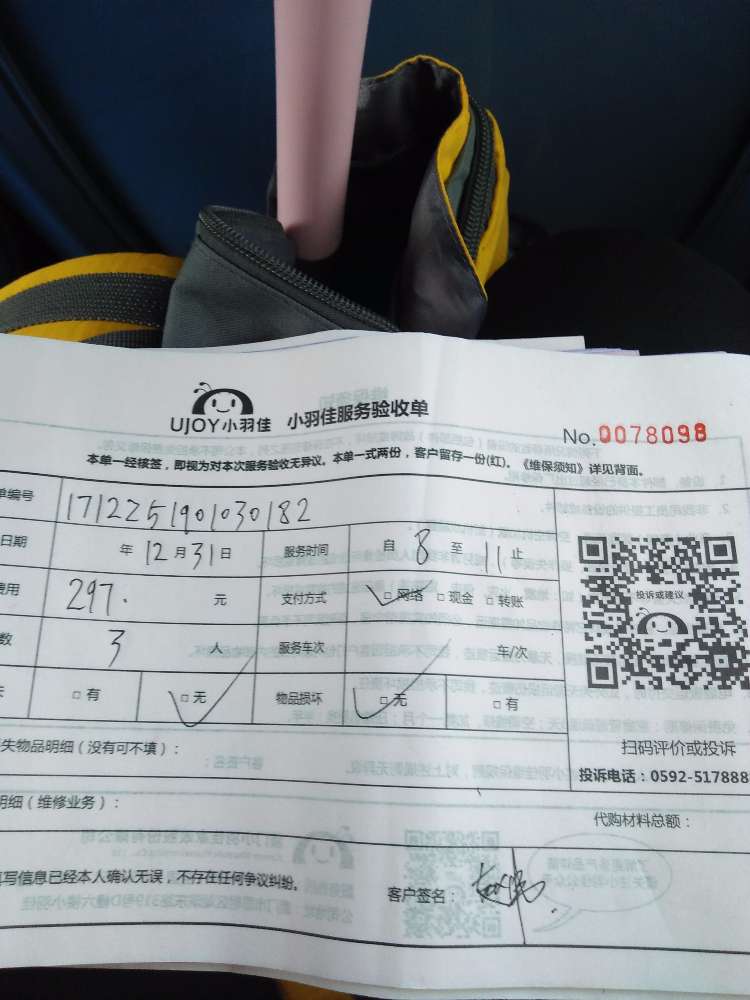 UJOY小羽佳 小羽佳服务验收单
No.0078098
本单一经核签，即视为对本次服务验收无异议。本单一式两份，客户留存一份(红)。《维保须知》详见背面。
单编号 1712251901030182
日期 年 12月31日 服务时间 自 8 至 11 止
费用 297. 元 支付方式 □网络 □现金 □转账
数 3 人 服务车次 车/次
□有 □无 物品损坏 □无 □有
投诉或建议
扫码评价或投诉
投诉电话：0592-517888
失物品明细（没有可不填）：
明细（维修业务）：
代购材料总额：
填写信息已经本人确认无误，不存在任何争议纠纷。
客户签名：